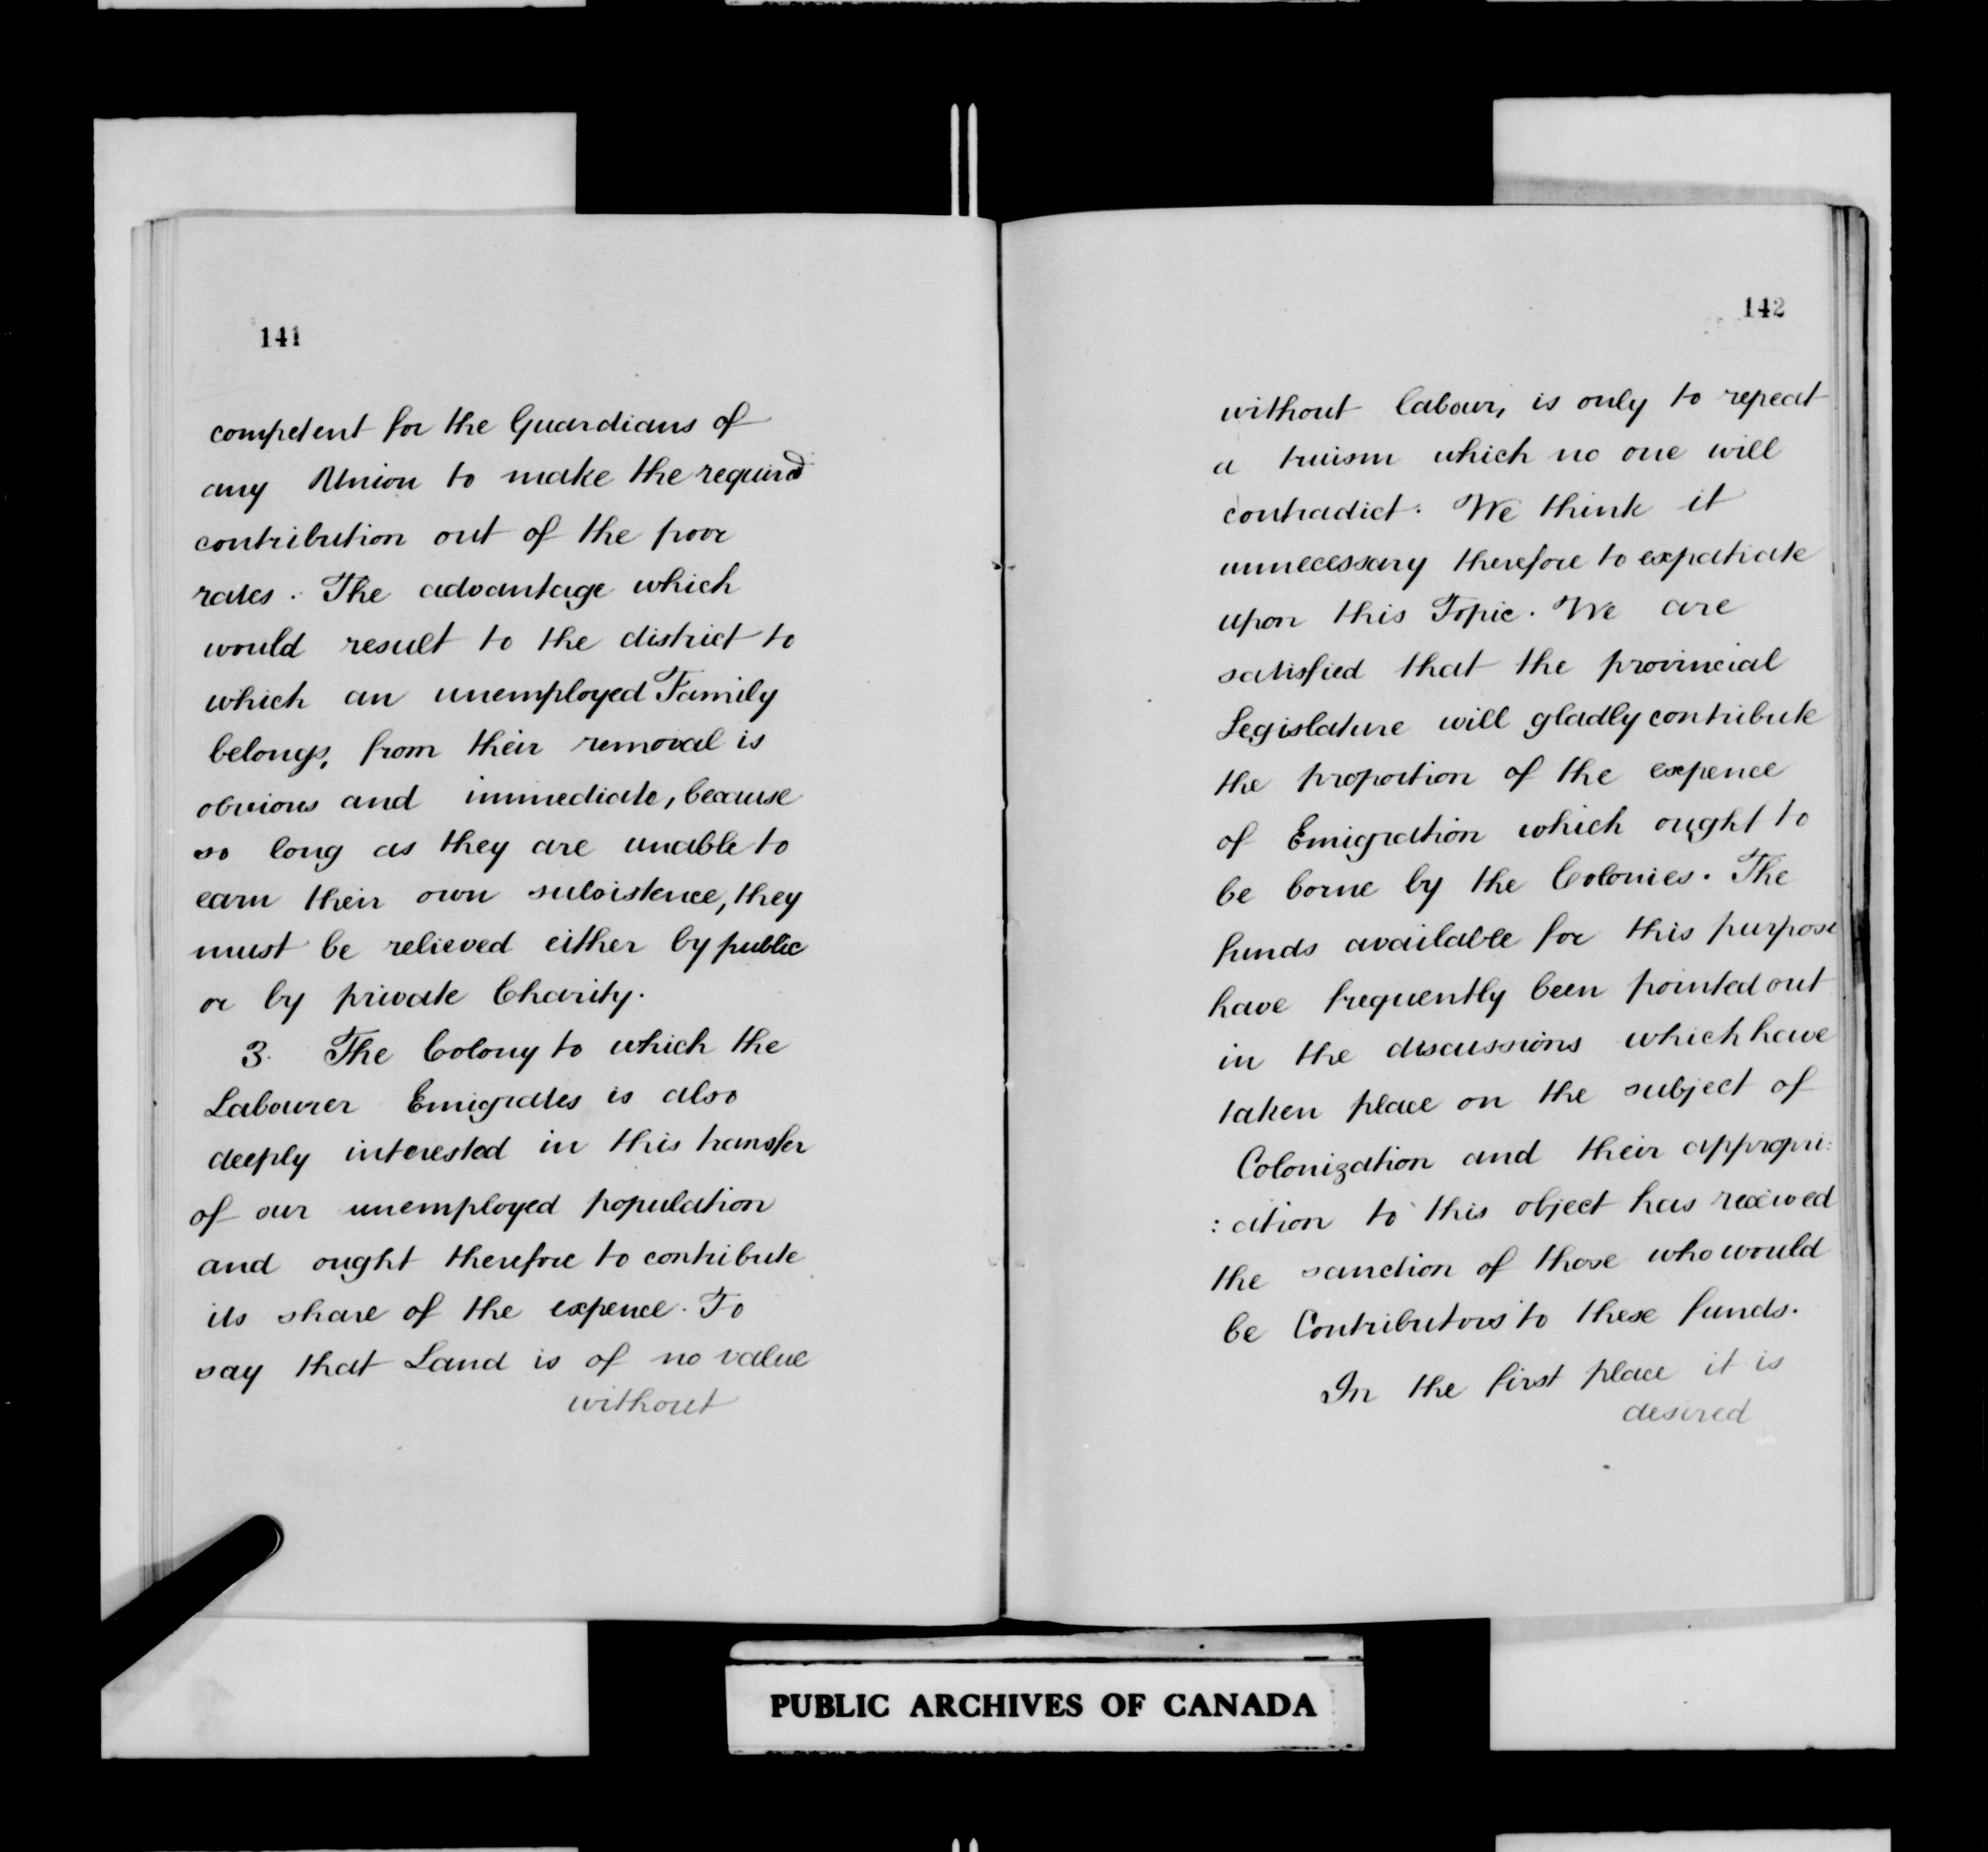 141
competent for the Guardians of
any Union to make the required
contribution out of the poor
rates. The advantage which
would result to the district to
which an unemployed Family
belongs, from their removal is
obvious and immediate, because
so long as they are unable to
earn their own subsistence, they
must be relieved either by public
or by private Charity.
3. The Colony to which the
Labourer Emigrates is also
deeply interested in this transfer
of our unemployed population
and ought therefore to contribute
its share of the expence. To
say that Land is of no value
without
142
without labour, is only to repeat
a truism which no one will
contradict. We think it
unnecessary therefore to expatiate
upon this Topic. We are
satisfied that the provincial
Legislature will gladly contribute
the proportion of the expence
of Emigration which ought to
be borne by the Colonies. The
funds available for this purpose
have frequently been pointed out
in the discussions which have
taken place on the subject of
Colonization and their appropri:
:ation to this object has received
the sanction of those who would
be Contributors to these funds.
In the first place it is
desired
PUBLIC ARCHIVES OF CANADA